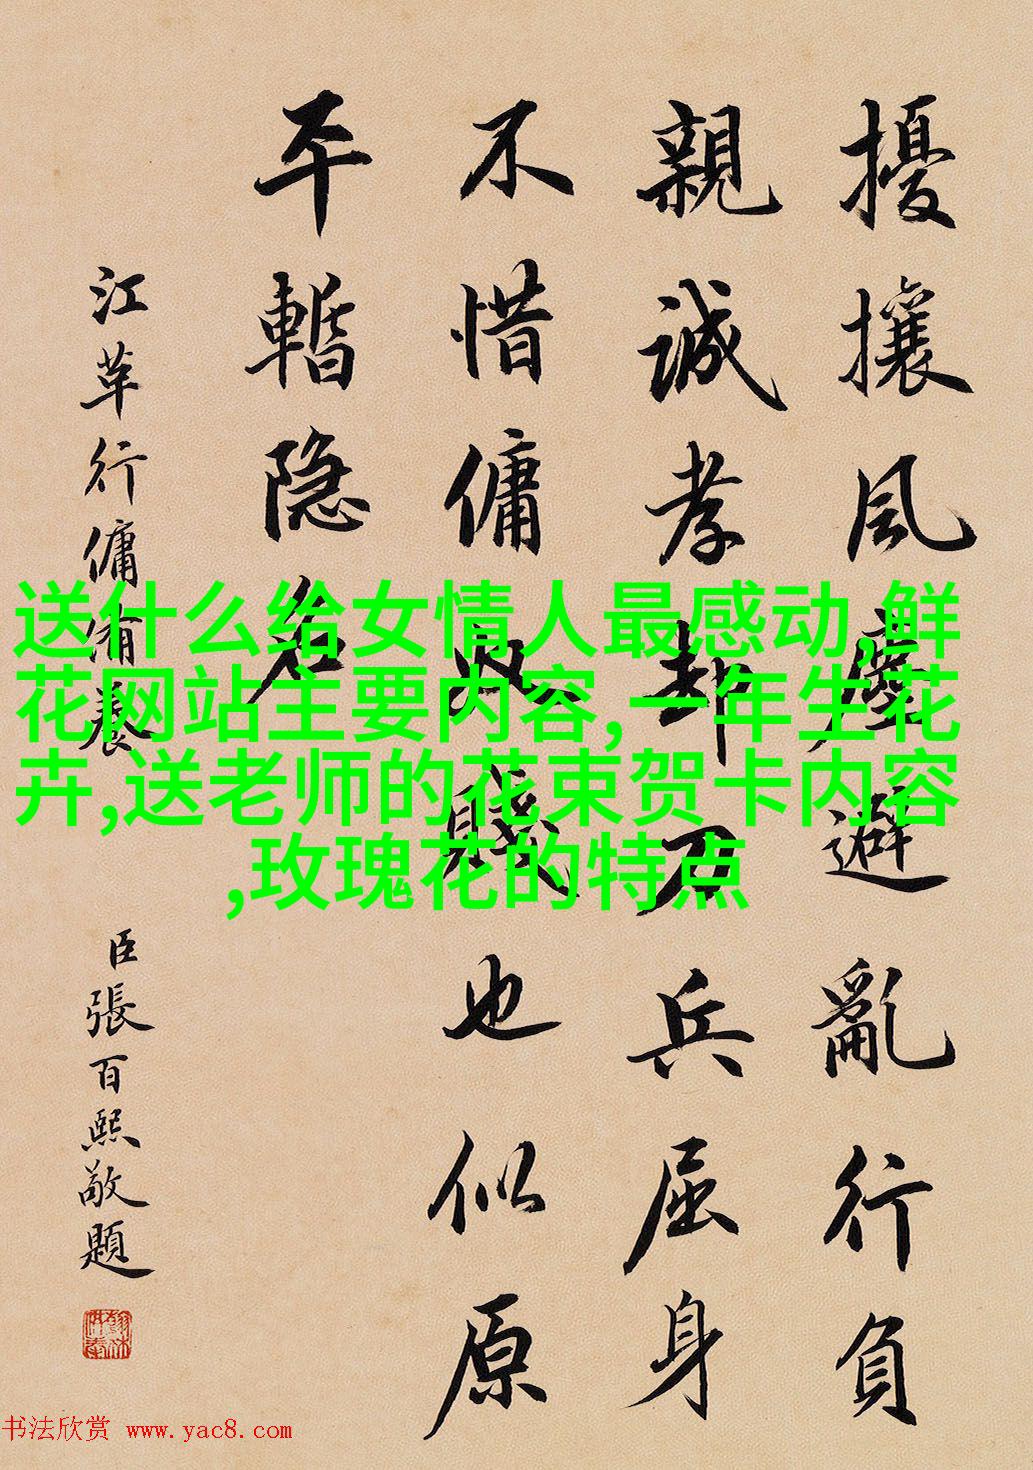 擾攘風塵避亂行負
親誠孝却刀兵屈身
不惜傭奴賤也似原
平暫隱名
江革行傭備養
臣張百熙敬題
送什么给女情人最感动,鲜
花网站主要内容,一年生花
卉,送老师的花束贺卡内容
,玫瑰花的特点
书法欣赏 www.yac8.com